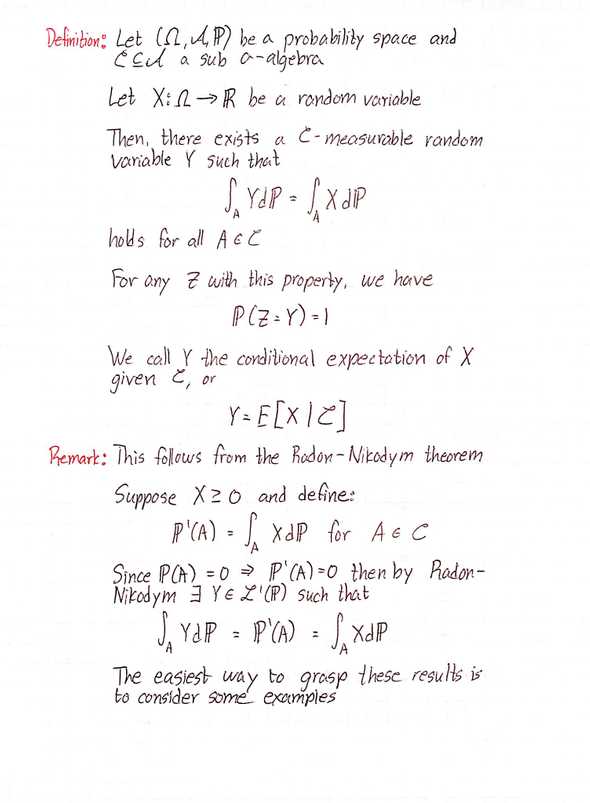 Definition: Let (Ω, 𝒜, ℙ) be a probability space and
𝒞 ⊆ 𝒜 a sub σ-algebra
Let X: Ω → ℝ be a random variable
Then, there exists a 𝒞-measurable random
variable Y such that
∫_A Y dℙ = ∫_A X dℙ
holds for all A ∈ 𝒞
For any Z with this property, we have
ℙ(Z = Y) = 1
We call Y the conditional expectation of X
given 𝒞, or
Y = E[X | 𝒞]
Remark: This follows from the Radon-Nikodym theorem
Suppose X ≥ 0 and define:
ℙ'(A) = ∫_A X dℙ for A ∈ C
Since ℙ(A) = 0 ⇒ ℙ'(A) = 0 then by Radon-
Nikodym ∃ Y ∈ ℒ'(ℙ) such that
∫_A Y dℙ = ℙ'(A) = ∫_A X dℙ
The easiest way to grasp these results is
to consider some examples